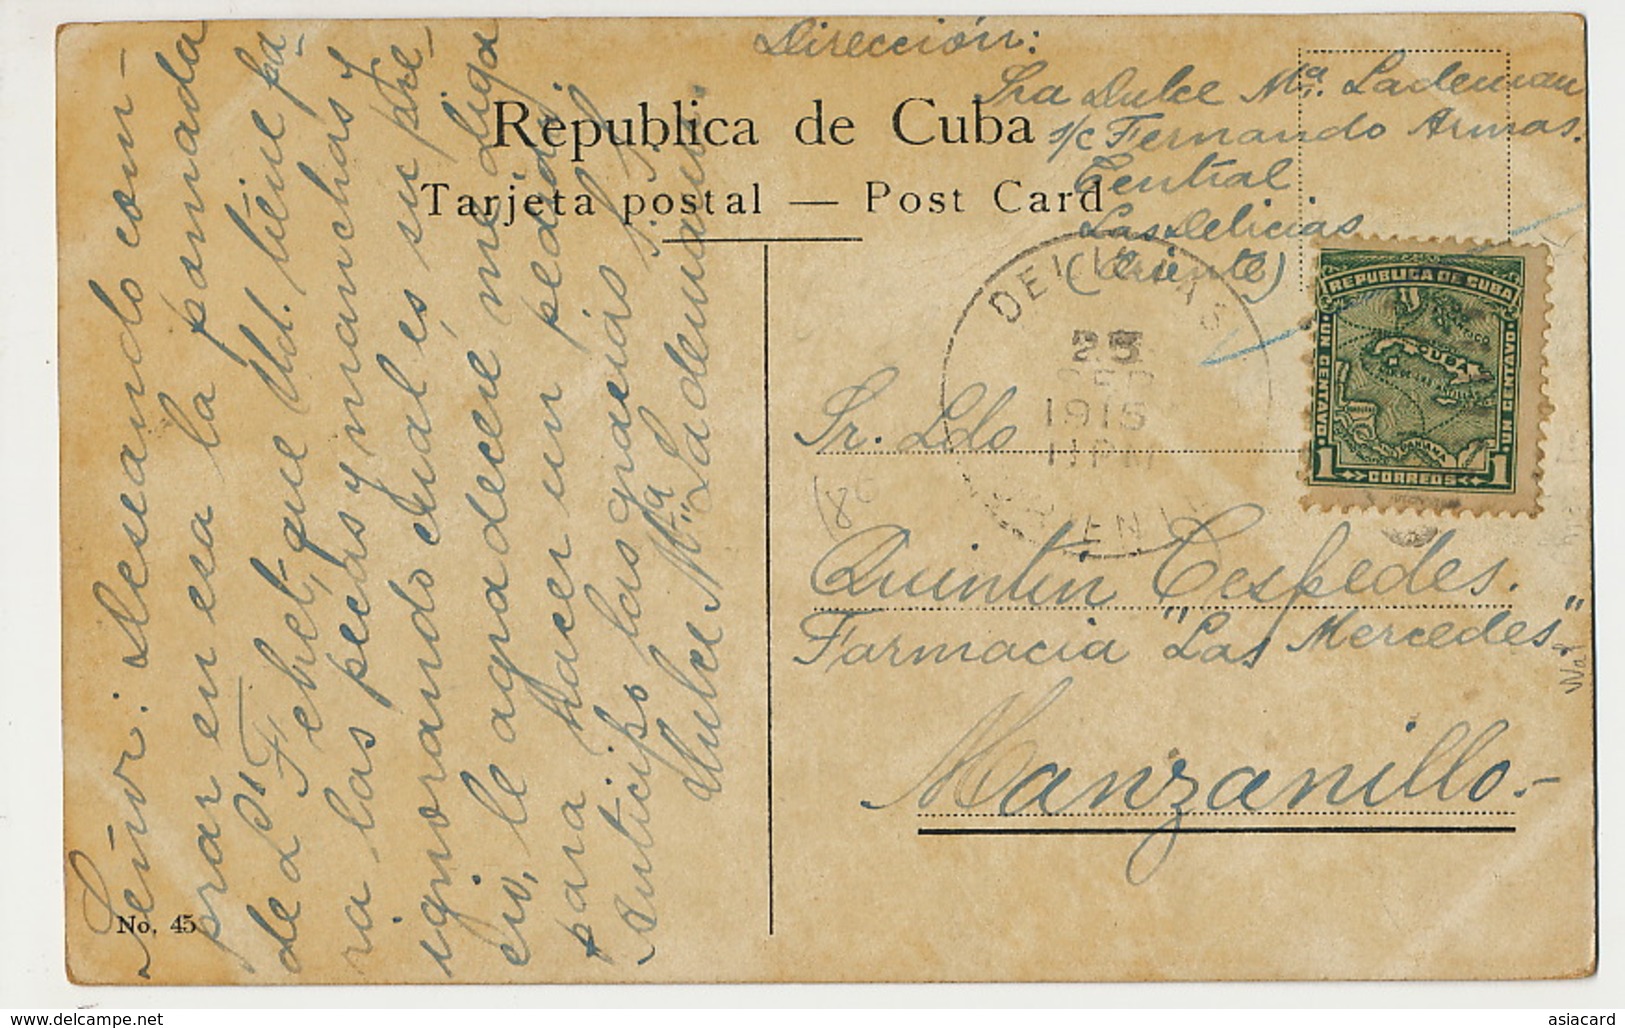 Dirección:
Sra Dulce Mª. Lademan
s/c Fernando Armas.
Central
Las Delicias
(Oriente)
Republica de Cuba
Tarjeta postal — Post Card
REPUBLICA DE CUBA
UN CENTAVO
UN CENTAVO
CUBA
PANAMA
1 CORREOS 1
25
1915
11 PM
Sr. Ldo
Quintin Cespedes.
Farmacia "Las Mercedes"
Manzanillo.-
Señor: Deseando com-
prar en esa la pomada
de L' Febet, que Ud. tiene pa-
ra las pecas y manchas y
ignorando cual es su pre-
cio, le agradecere me diga
para hacer un pedido.
Anticipo las gracias
S. S. S.
Dulce Mª Lademann
No. 45
asiacard